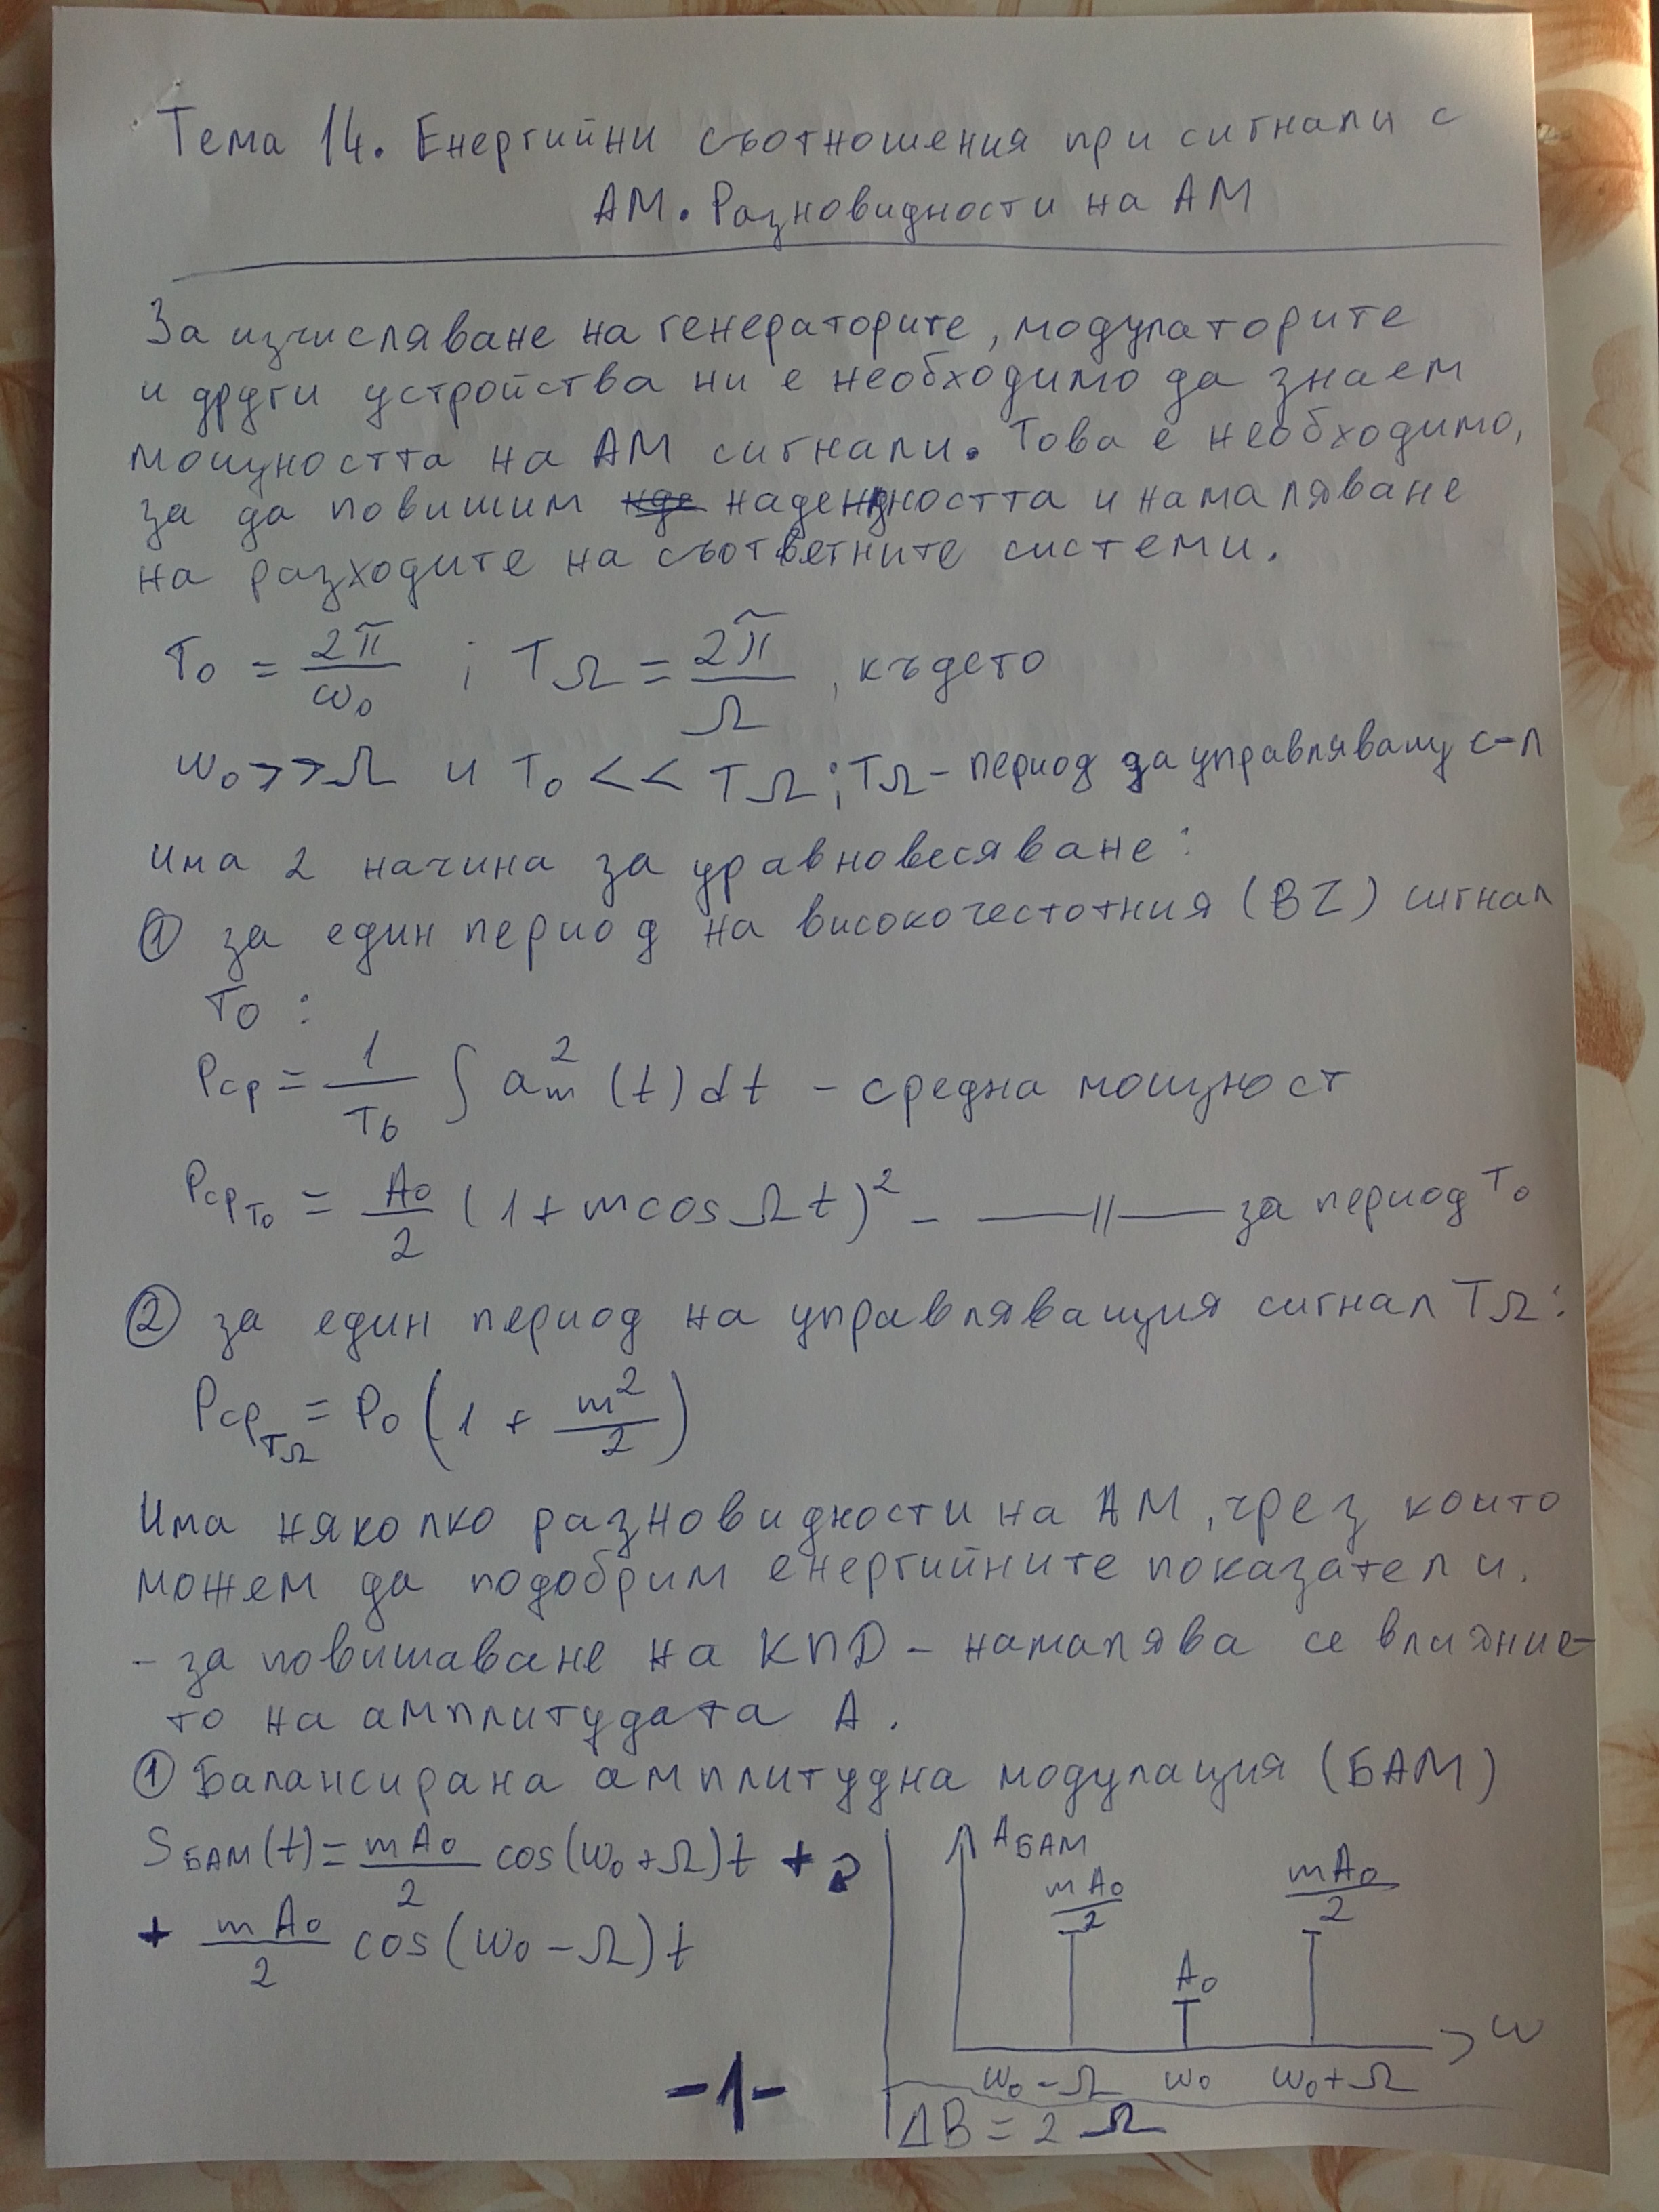 Тема 14. Енергийни съотношения при сигнали с
АМ. Разновидности на АМ
За изчисляване на генераторите, модулаторите
и други устройства ни е необходимо да знаем
мощността на АМ сигнали. Това е необходимо,
за да повишим надеждността и намаляване
на разходите на съответните системи.
T₀ = 2π/ω₀ ; TΩ = 2π/Ω, където
ω₀ >> Ω и T₀ << TΩ; TΩ - период да управляващ с-л
Има 2 начина за уравновесяване:
① за един период на високочестотния (ВЧ) сигнал
T₀ :
Pср = 1/T₀ ∫ aₘ² (t) dt - средна мощност
PсрT₀ = A₀/2 (1 + m cos Ωt)² - —//— за период T₀
② за един период на управляващия сигнал TΩ:
PсрTΩ = P₀ (1 + m²/2)
Има няколко разновидности на АМ, чрез които
можем да подобрим енергийните показатели.
- за повишаване на КПД - намалява се влияние-
то на амплитудата А.
① Балансирана амплитудна модулация (БАМ)
SБАМ(t) = mA₀/2 cos(ω₀+Ω)t +
+ mA₀/2 cos(ω₀-Ω)t
AБАМ
mA₀/2 mA₀/2
A₀
ω
ω₀-Ω ω₀ ω₀+Ω
ΔB = 2Ω
-1-